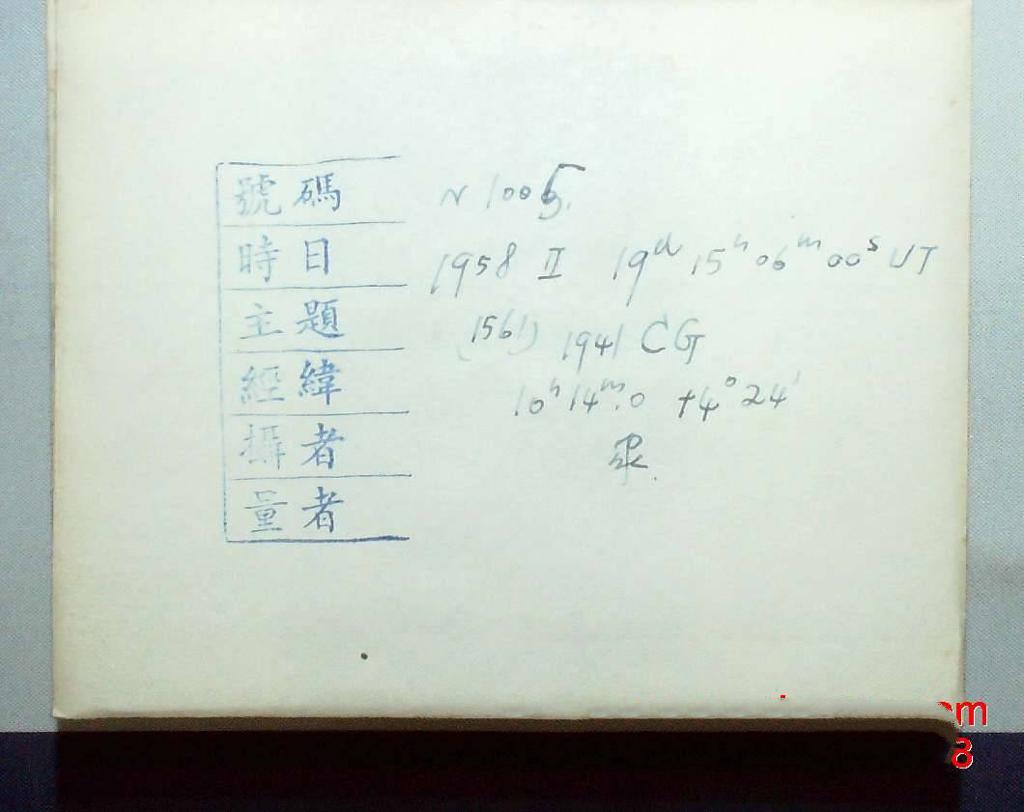 號碼 N 1005.
時日 1958 II 19ᵈ 15ʰ 06ᵐ 00ˢ UT
主題 (1561) 1941 CG
經緯 10ʰ 14ᵐ.0 +4° 24'
攝者
量者